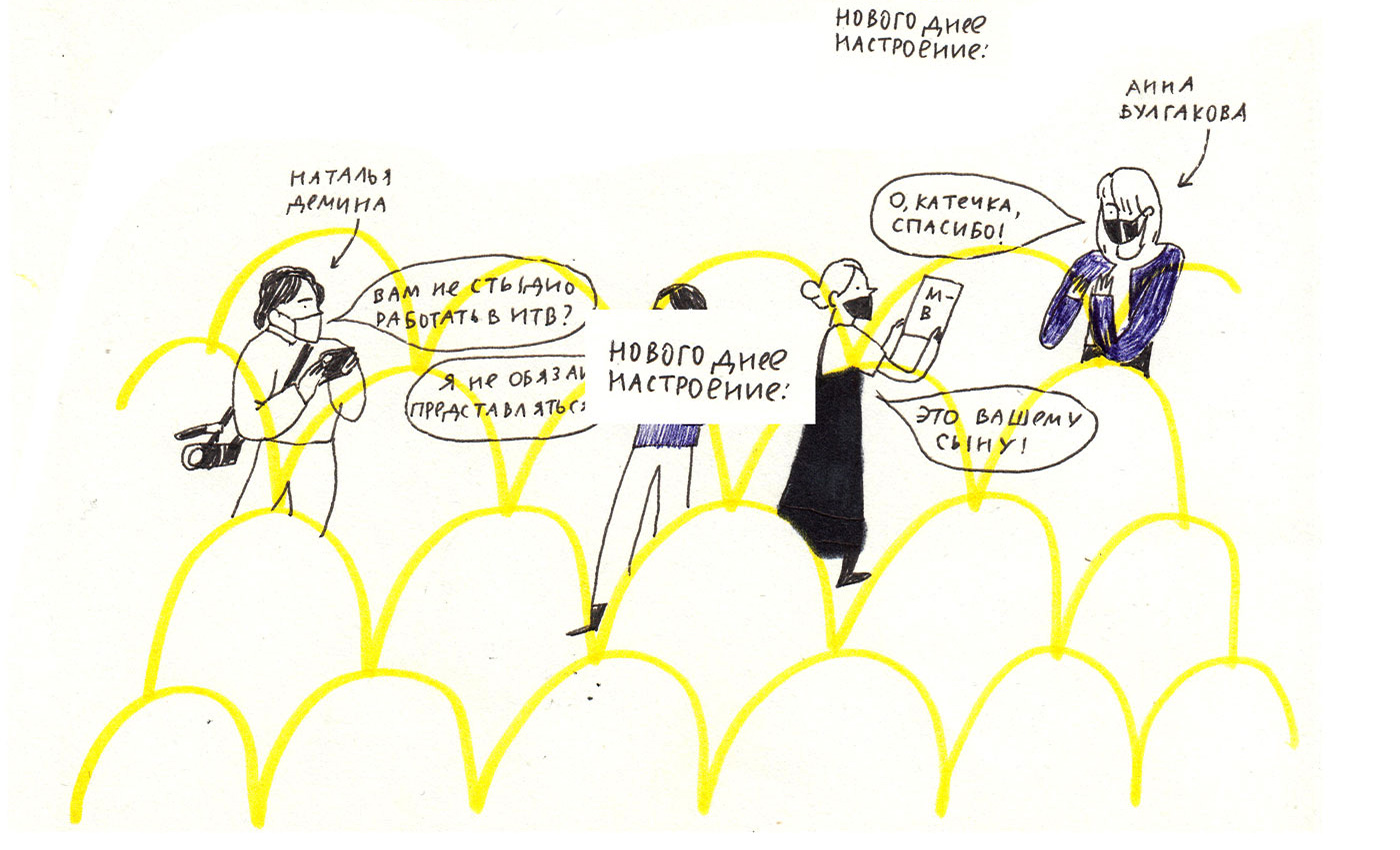 НОВОГОДНЕЕ
НАСТРОЕНИЕ:
АННА
БУЛГАКОВА
НАТАЛЬЯ
ДЕМИНА
О, КАТЕЧКА,
СПАСИБО!
ВАМ НЕ СТЫДНО
РАБОТАТЬ В НТВ?
Я НЕ ОБЯЗАН
ПРЕДСТАВЛЯТЬСЯ
НОВОГОДНЕЕ
НАСТРОЕНИЕ:
М-
В
ЭТО ВАШЕМУ
СЫНУ!